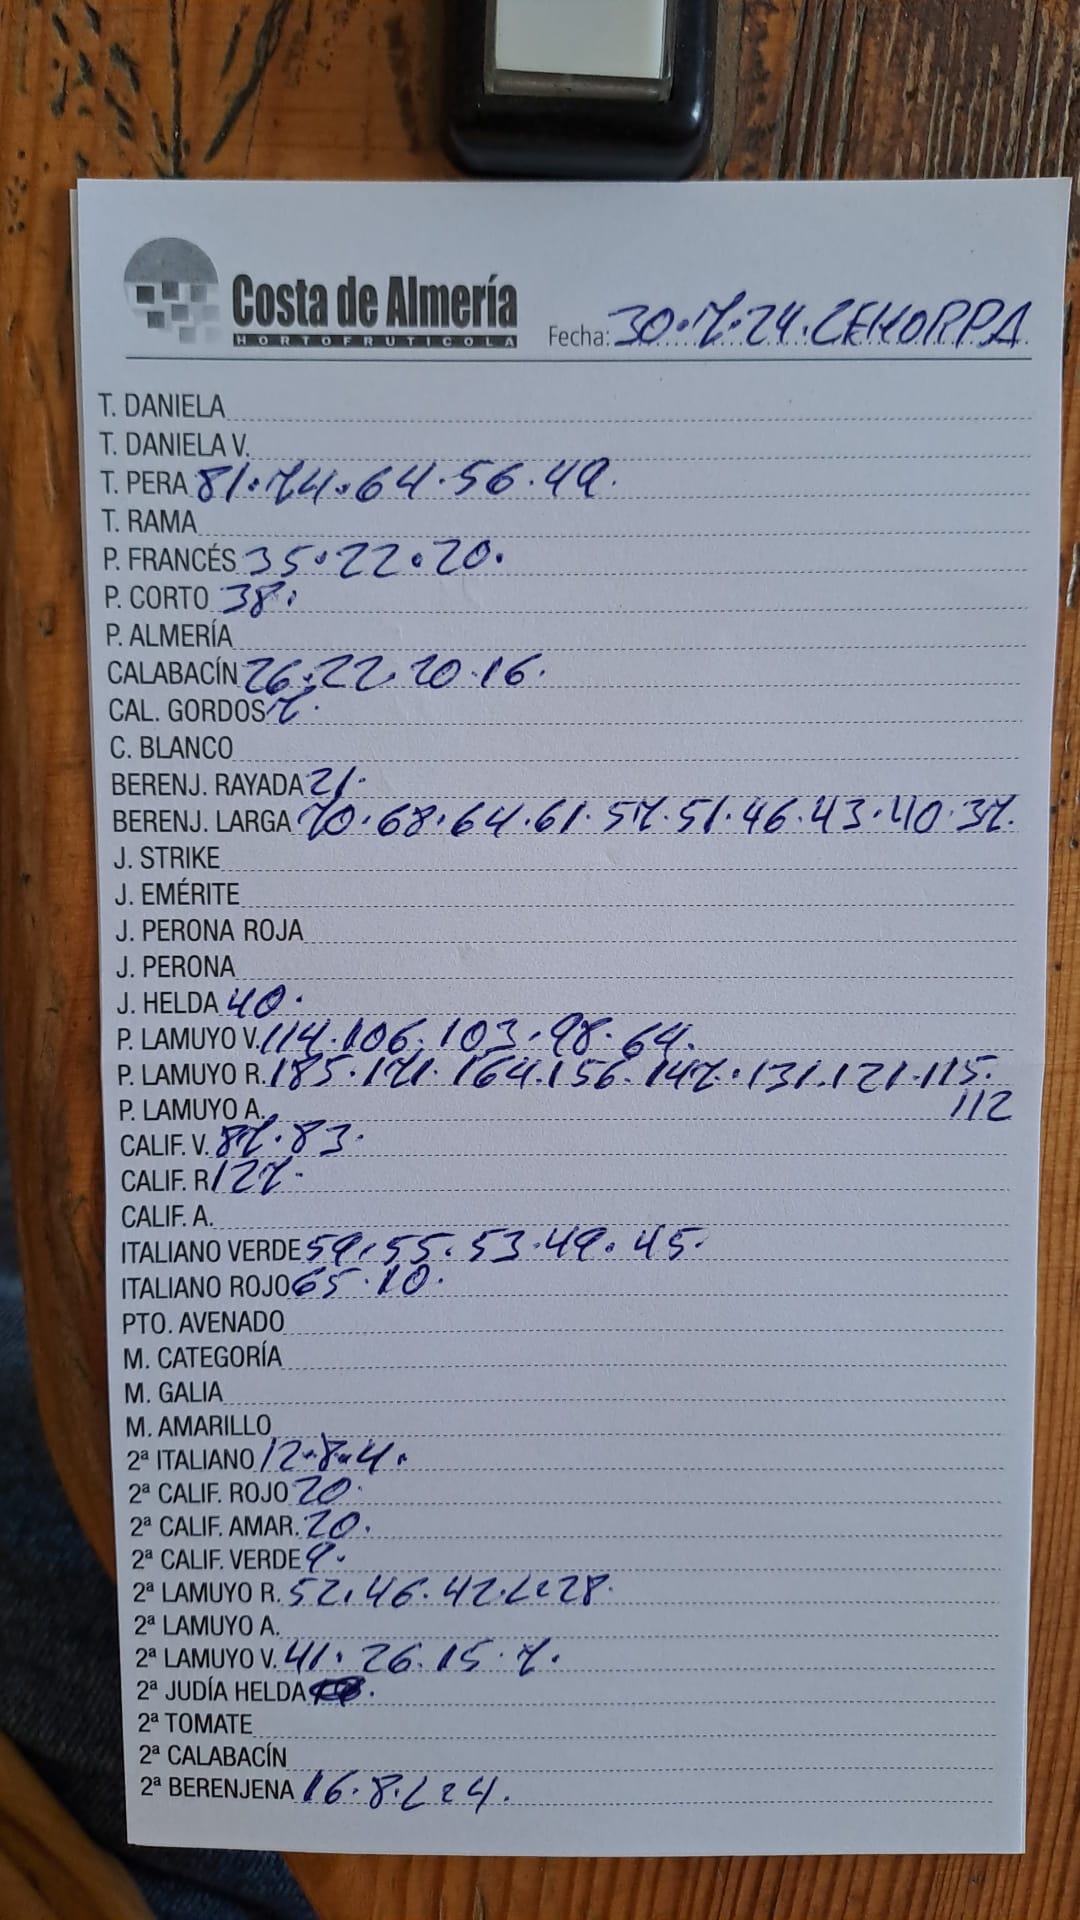 Costa de Almería
HORTOFRUTICOLA
Fecha: 30.7.24. ZEHORPA
T. DANIELA
T. DANIELA V.
T. PERA 81.74.64.56.49.
T. RAMA
P. FRANCÉS 35.22.20.
P. CORTO 38.
P. ALMERÍA
CALABACÍN 26.22.20.16.
CAL. GORDOS 7.
C. BLANCO
BERENJ. RAYADA 21.
BERENJ. LARGA 70.68.64.61.57.51.46.43.40.37.
J. STRIKE
J. EMÉRITE
J. PERONA ROJA
J. PERONA
J. HELDA 40.
P. LAMUYO V. 114.106.103.98.64.
P. LAMUYO R. 185.171.164.156.147.131.121.115.
P. LAMUYO A. 112
CALIF. V. 87.83.
CALIF. R 127.
CALIF. A.
ITALIANO VERDE 59.55.53.49.45.
ITALIANO ROJO 65.10.
PTO. AVENADO
M. CATEGORÍA
M. GALIA
M. AMARILLO
2ª ITALIANO 12.8.4.
2ª CALIF. ROJO 20.
2ª CALIF. AMAR. 20.
2ª CALIF. VERDE 9.
2ª LAMUYO R. 52.46.42. 28.
2ª LAMUYO A.
2ª LAMUYO V. 41.26.15.7.
2ª JUDÍA HELDA
2ª TOMATE
2ª CALABACÍN
2ª BERENJENA 16.8. 4.